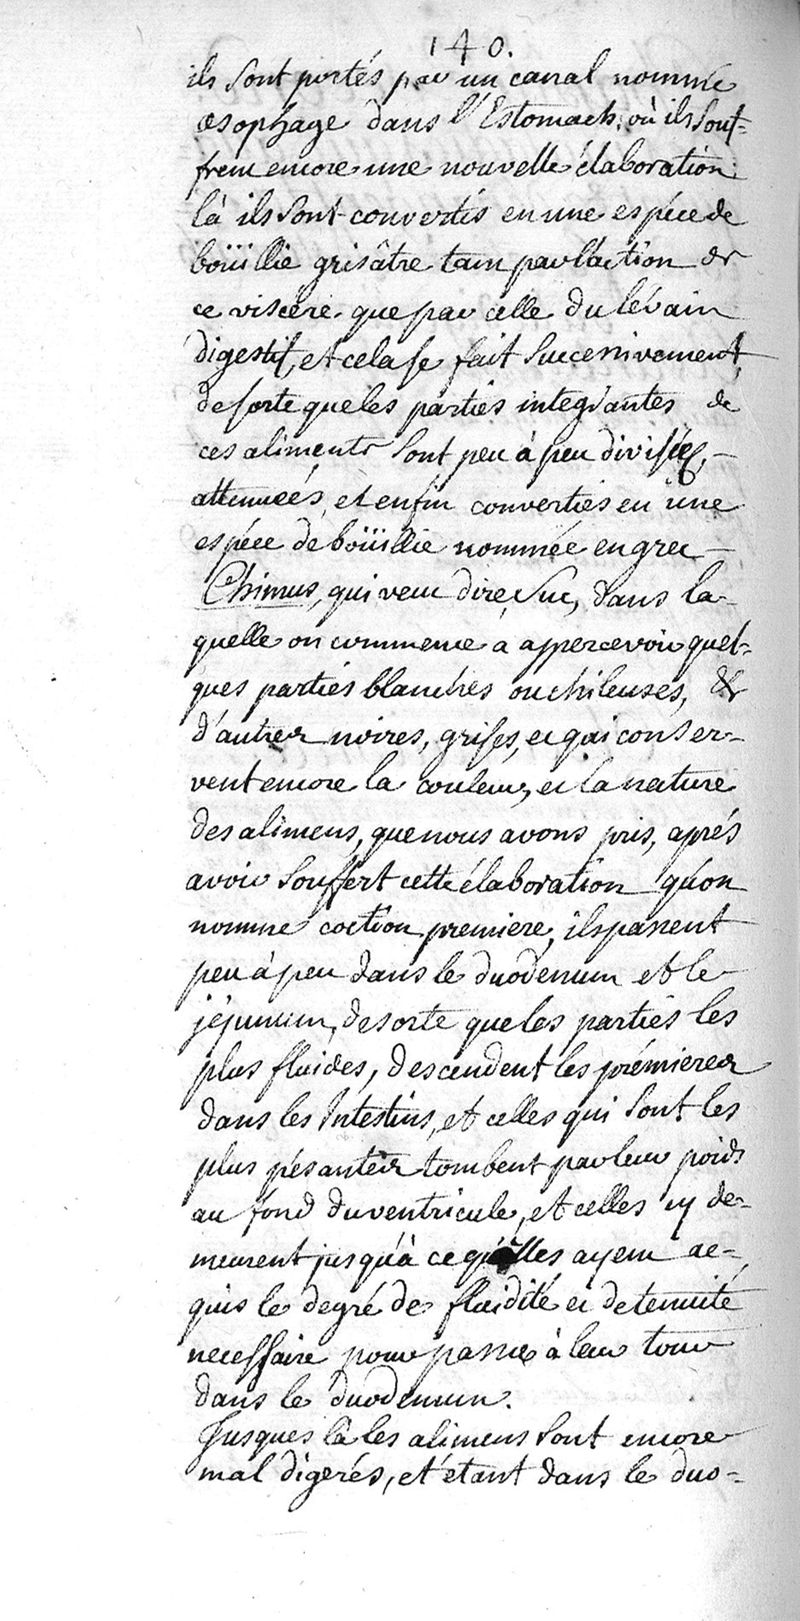 140.
ils sont portés par un canal nommé
œsophage dans l'Estomach, où ils souf-
frent encore une nouvelle élaboration
là ils sont convertis en une espéce de
boüillie grisâtre tant par l'action de
ce viscére que par celle du lévain
digestif, et cela se fait successivement,
de sorte que les parties integrantes de
ces aliments sont peu à peu divisées,
attenuées, et enfin converties en une
espéce de boüillie nommée en grec
Chimus, qui veut dire suc, dans la-
quelle on commence à appercevoir quel-
ques parties blanches ou chileuses, &
d'autres noires, grises, et qui conser-
vent encore la couleur, et la nature
des alimens, que nous avons pris, aprés
avoir souffert cette élaboration qu'on
nomme coction premiere, ils passent
peu à peu dans le duodenum et le
jéjunum, de sorte que les parties les
plus fluides, descendent les prémieres
dans les Intestins, et celles qui sont les
plus pésantes tombent par leur poids
au fond du ventricule, et celles ey de-
meurent jusqu'à ce qu'elles ayent ac-
quis le degré de fluidité et de tenuité
necessaire pour passer à leur tour
dans le duodenum.
Jusques là les alimens sont encore
mal digerés, et étant dans le duo-